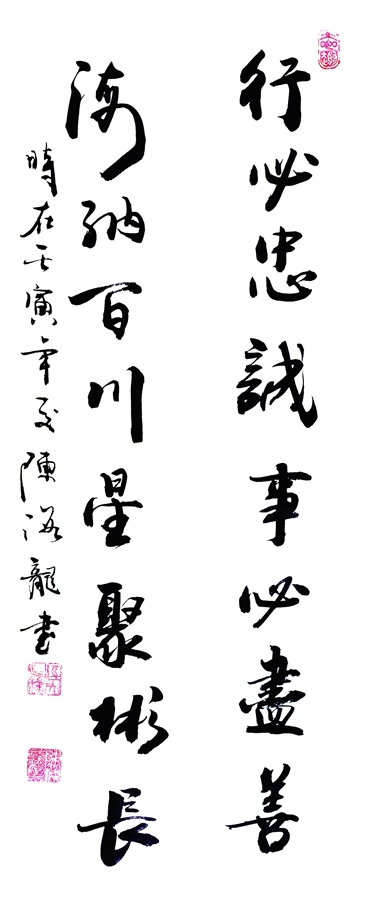 行必忠誠事必盡善
海納百川星聚彬長
時在壬寅年夏陳海龍書